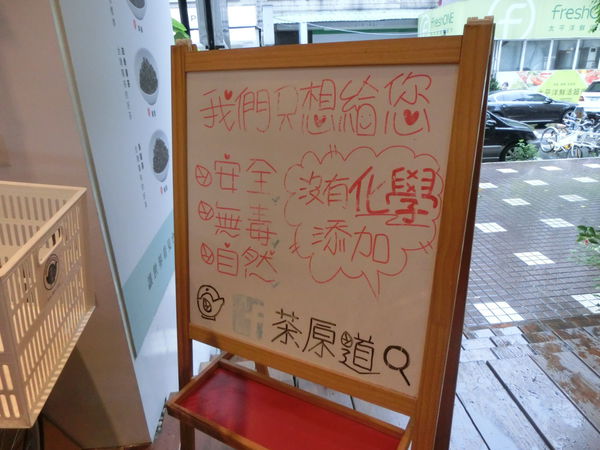 我們只想給您
安全
無毒
自然
沒有化學
添加
茶原道
freshONE
太平洋鮮活